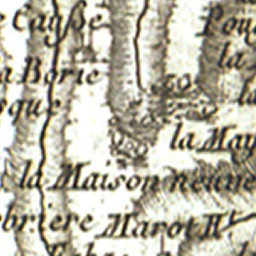 Cagße
Pou
la
a Borie
la
sque
la May
la Maison neuve
briere Marot Mt
la